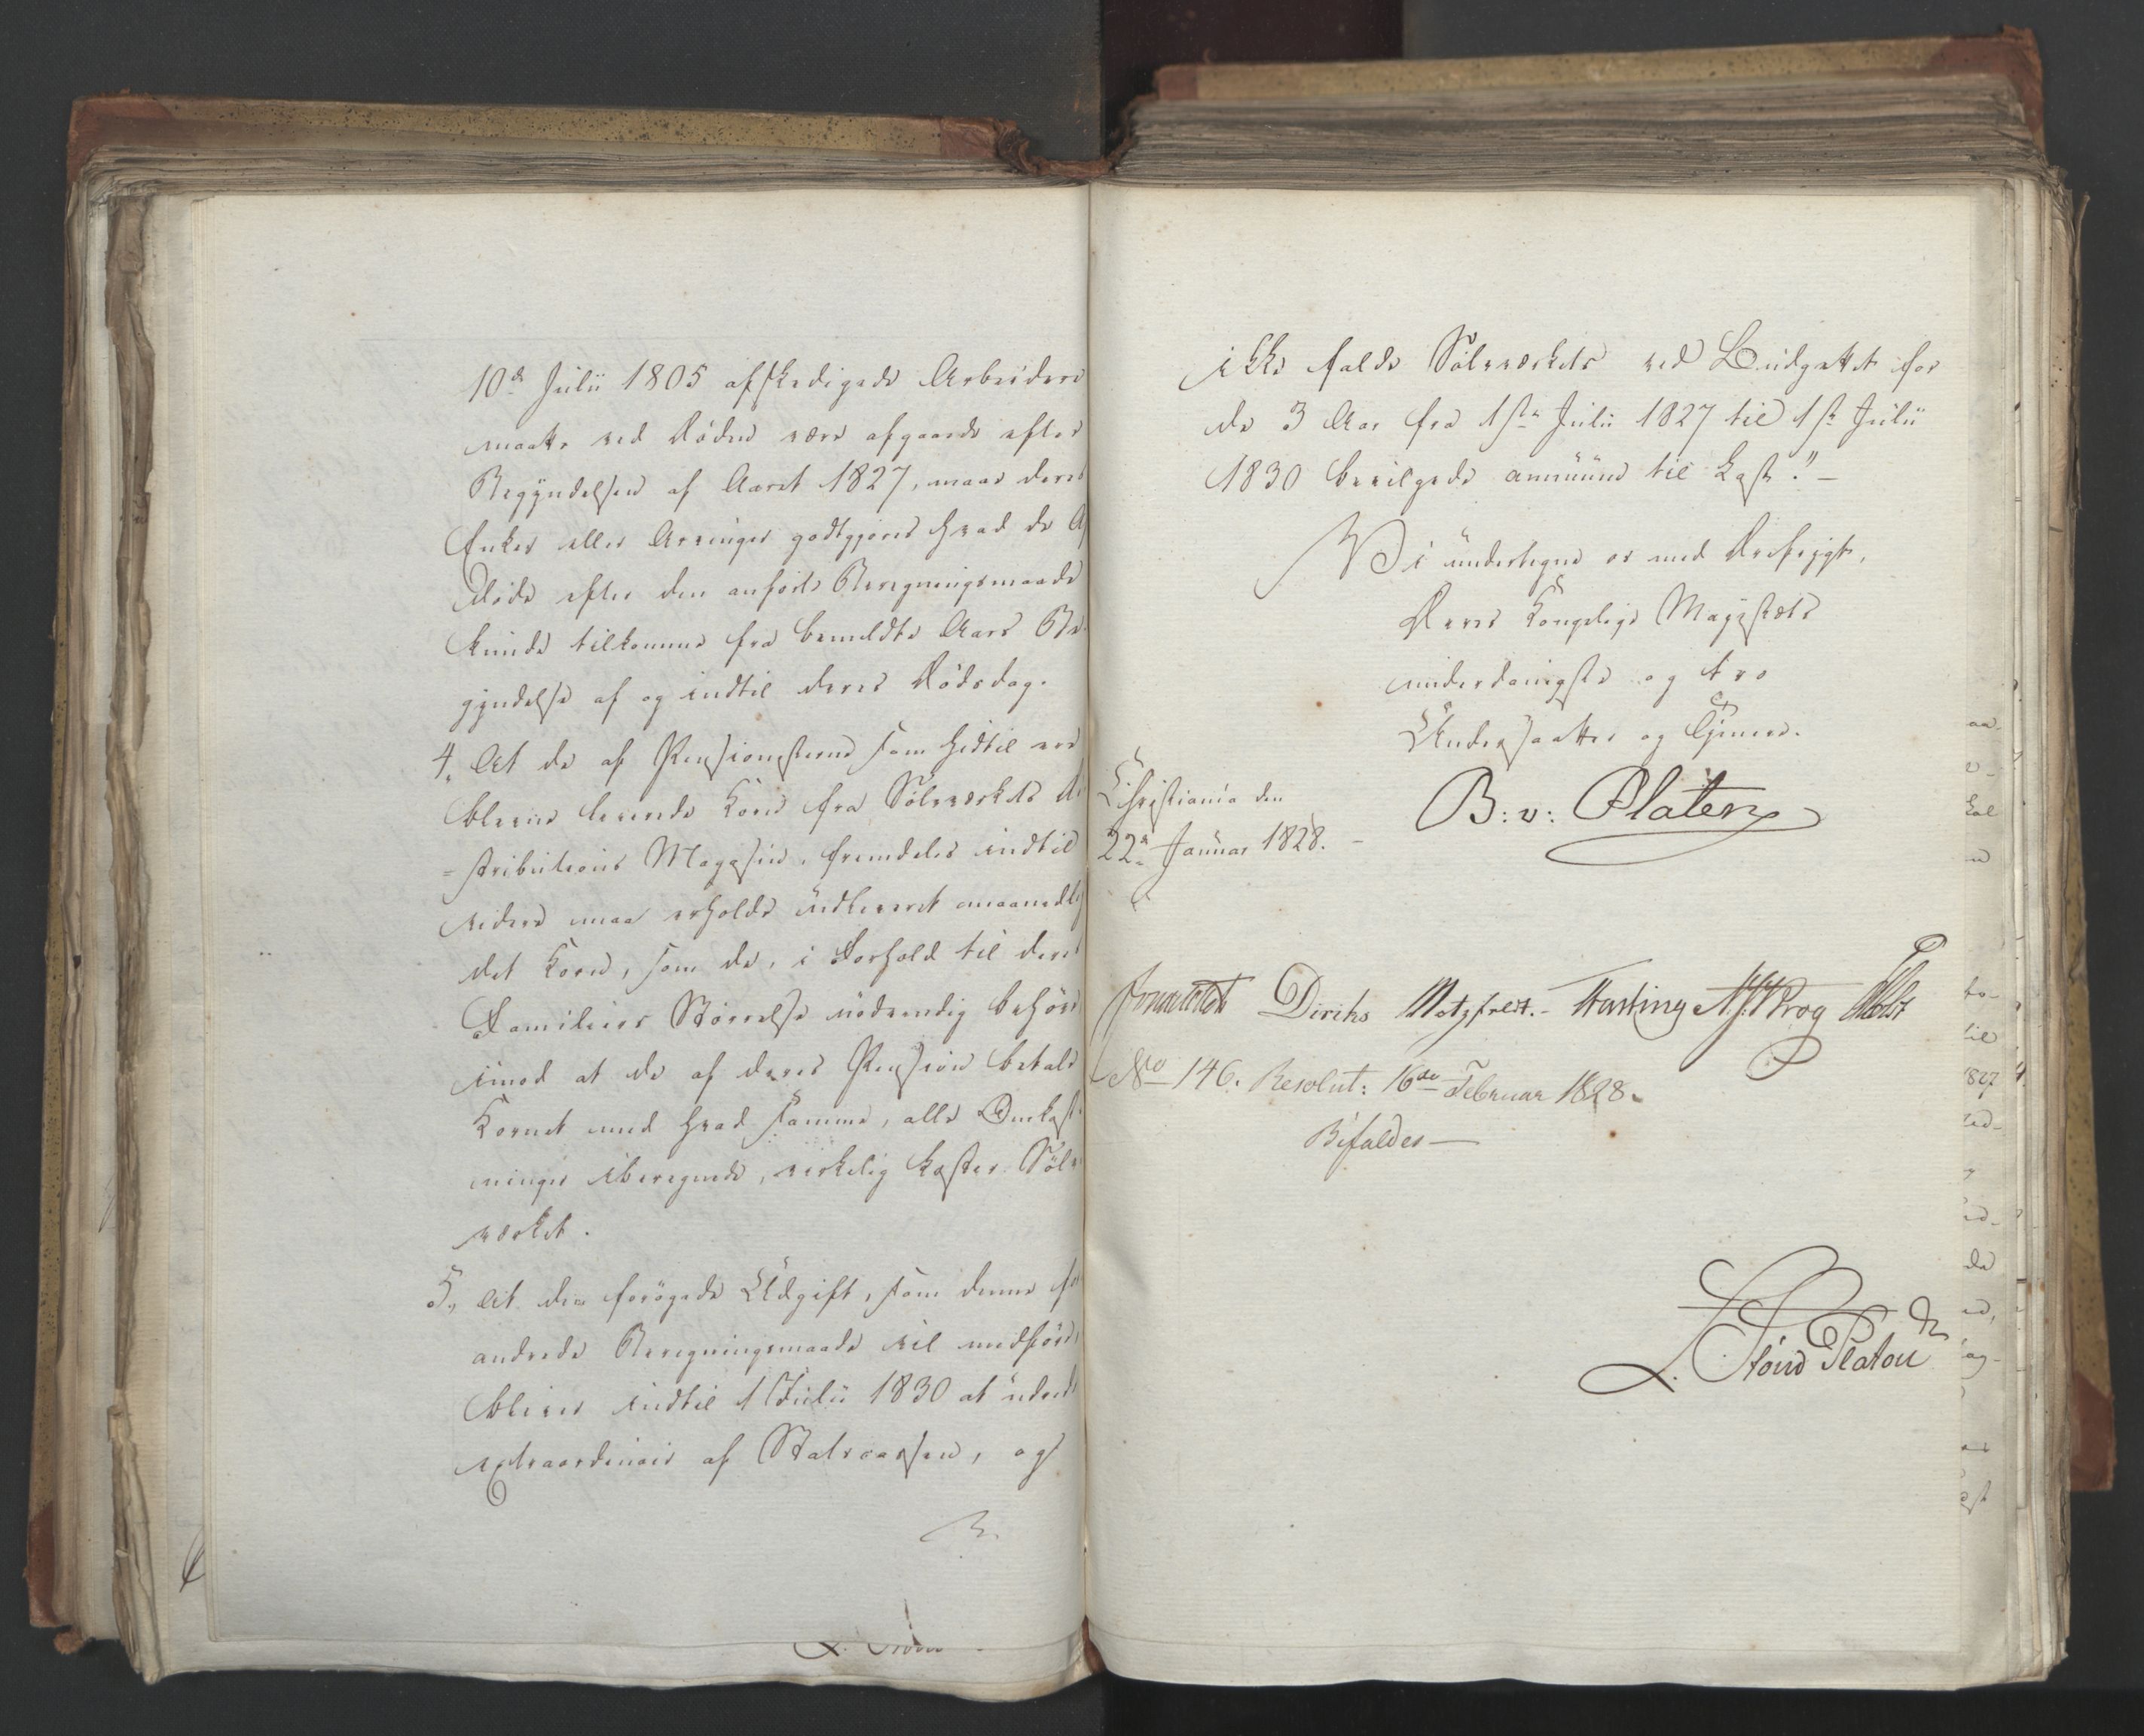 10de Julii 1805 afskedigede Arbeidere
maatte ved Döden være afgaaede efter
Begyndelsen af Aaret 1827, maae deres
Enker eller Arvinger godtgjøres hvad de A
döde efter den anførte Beregningsmaade
kunde tilkomme fra bemeldte Aars Be-
gyndelse af og indtil deres Dödsdag.
4, At de af Pensionisterne som hidtil ere
blevne leverede Korn fra Sølvværkets Di
=stributions Magazin, fremdeles indtil
videre maa erholde udleveret maanedlig
det Korn, som de, i Forhold til deres
Familiers Störrelse nödvendig behöve
imod at de af deres Pension betale
Kornet med hvad samme, alle Omkost
ninger iberegnede, virkelig koster Sölv
værket.
5, At den forögede Udgift, som denne for
andrede Beregningsmaade vil medföre,
bliver indtil 1 Julii 1830 at udrede
extraordinair af Statscassen, og
ikke falde Sölvværkets ved Budgettet for
de 3 Aar fra 1ste Julii 1827 til 1ste Julii
1830 bevilgede annuum til Last."-
Vi undertegne os med Drefrygt,
Deres Kongelige Majestæts
underdanigste og tro
Undersaatter og Tjenere.
Christiania den
22de Januar 1828. -
B: v: Platen
Diriks Motzfeldt.- Fasting Krog Holst
No 146. Resolut: 16de Februar 1828.
Bifaldes-
L. Stoud Platou